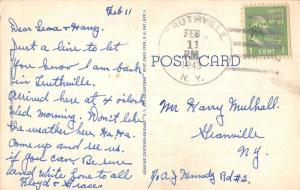 Feb 11
Dear Leona & Harry,
Just a line to let
you know I am back
in Truthville.
Arrived here at 4 o'clock
Wed morning. Don't like
the weather here. Ha. Ha.
Come up and see us.
if you can. Be sure
and write. Love to all
Floyd & Grace
TRUTHVILLE
FEB
11
PM
N.Y.
1¢
POST CARD
Mr Harry Mulhall.
Granville
N.Y.
℅ A J Rd #2